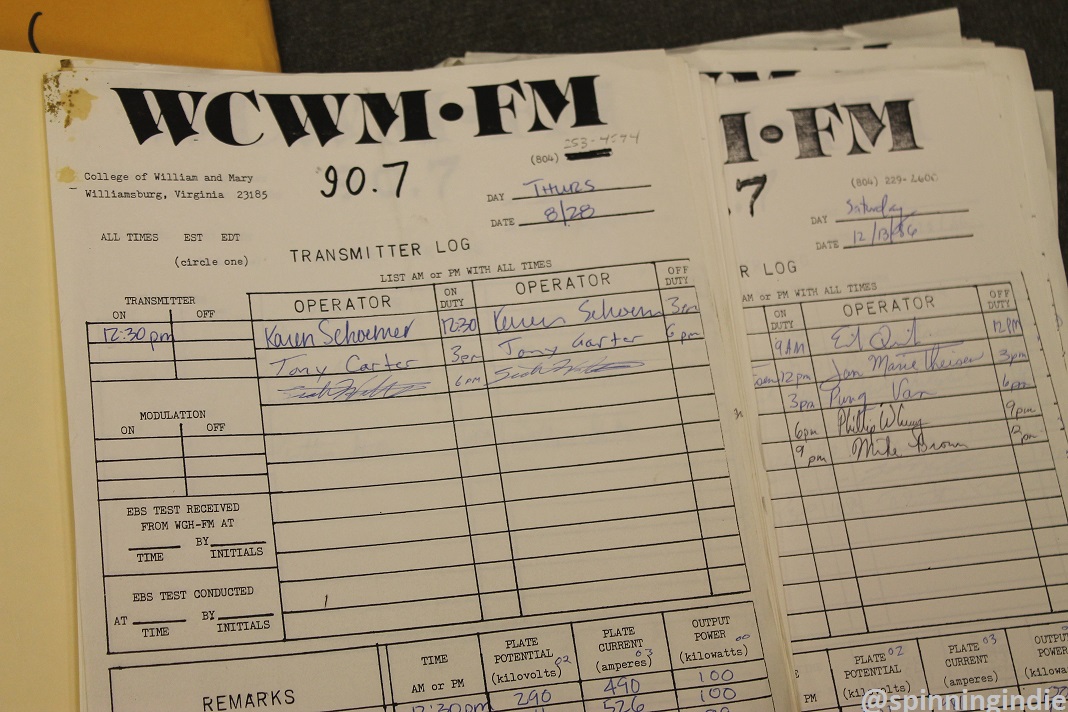 WCWM•FM
(804) 253-4544
90.7
College of William and Mary
Williamsburg, Virginia 23185
DAY THURS
DATE 8/28
ALL TIMES EST EDT
(circle one)
TRANSMITTER LOG
LIST AM or PM WITH ALL TIMES
TRANSMITTER
ON OFF
OPERATOR ON DUTY OPERATOR OFF DUTY
12:30 pm Karen Schoemer 12:30 Karen Schoem 3pm
Tony Carter 3pm Tony Carter 6pm
6pm
MODULATION
ON OFF
EBS TEST RECEIVED
FROM WGH-FM AT
BY
TIME INITIALS
EBS TEST CONDUCTED
AT BY
TIME INITIALS
REMARKS
TIME
AM or PM
PLATE POTENTIAL (kilovolts) 02
PLATE CURRENT (amperes) 03
OUTPUT POWER (kilowatts) 00
290 490 100
12:30pm 526 100
M•FM
.7
(804) 229-2600
DAY Saturday
DATE 12/13/86
R LOG
AM or PM WITH ALL TIMES
ON DUTY OPERATOR OFF DUTY
9AM 12PM
12pm Jan Marie Theisen 3pm
3pm Pung Van 6pm
6pm Phillip 9pm
9pm Mike Brown
PM
PLATE POTENTIAL (kilovolts) 02
PLATE CURRENT (amperes) 03
OUTPUT POWER (kilowa
@spinningindie